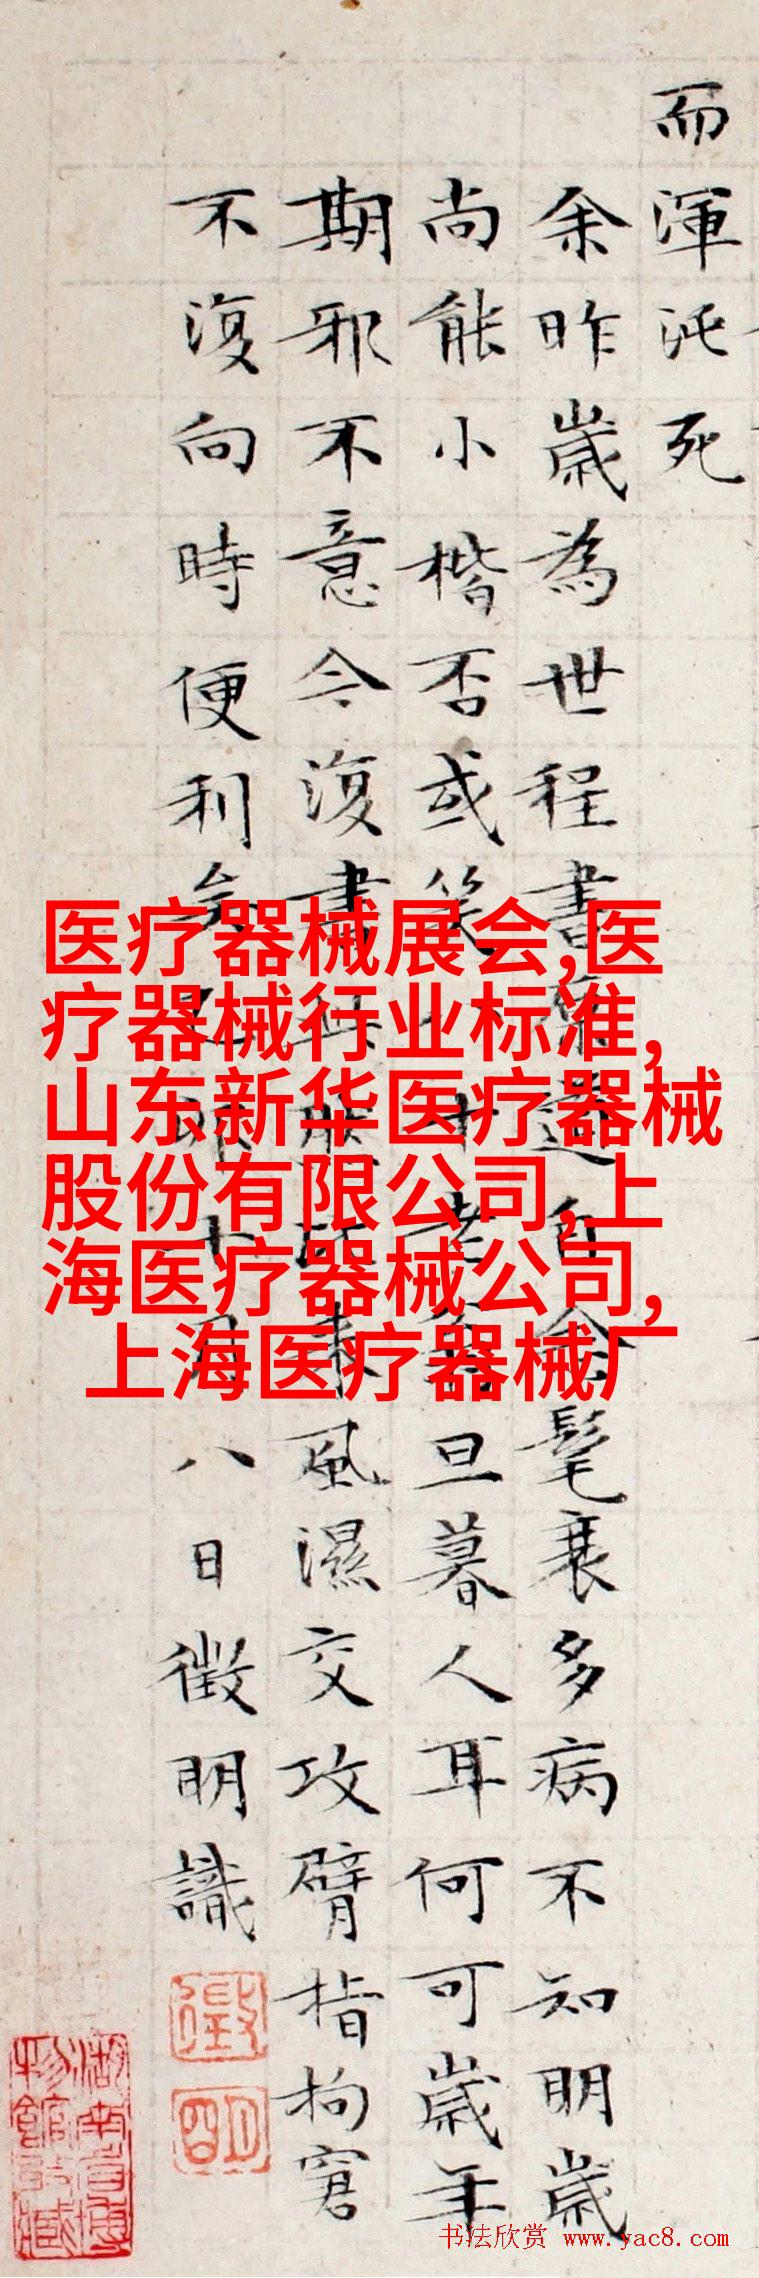 而渾沌死
余昨歲為世程書
自念髦衰多病不知明歲
尚能小楷否或笑
旦暮人耳何可歲年
期邪不意今復書
風濕交攻臂指拘窘
不復向時便利矣
八日徵明識
医疗器械展会,医
疗器械行业标准,
山东新华医疗器械
股份有限公司,上
海医疗器械公司,
上海医疗器械厂
徵
明
湖南省博
物館收藏
书法欣赏 www.yac8.com